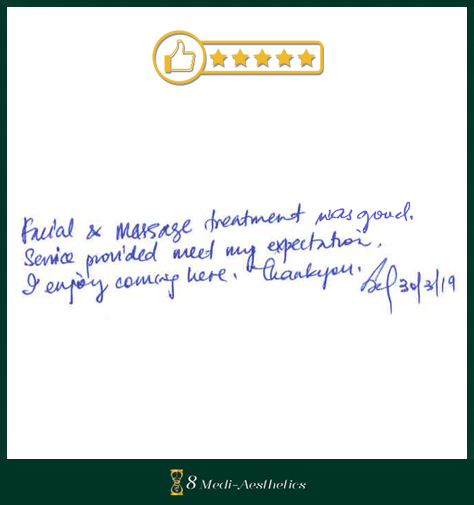 Facial & Massage treatment was good.
Service provided meet my expectation.
I enjoy coming here. Thankyou. 30/3/19
8 Medi-Aesthetics